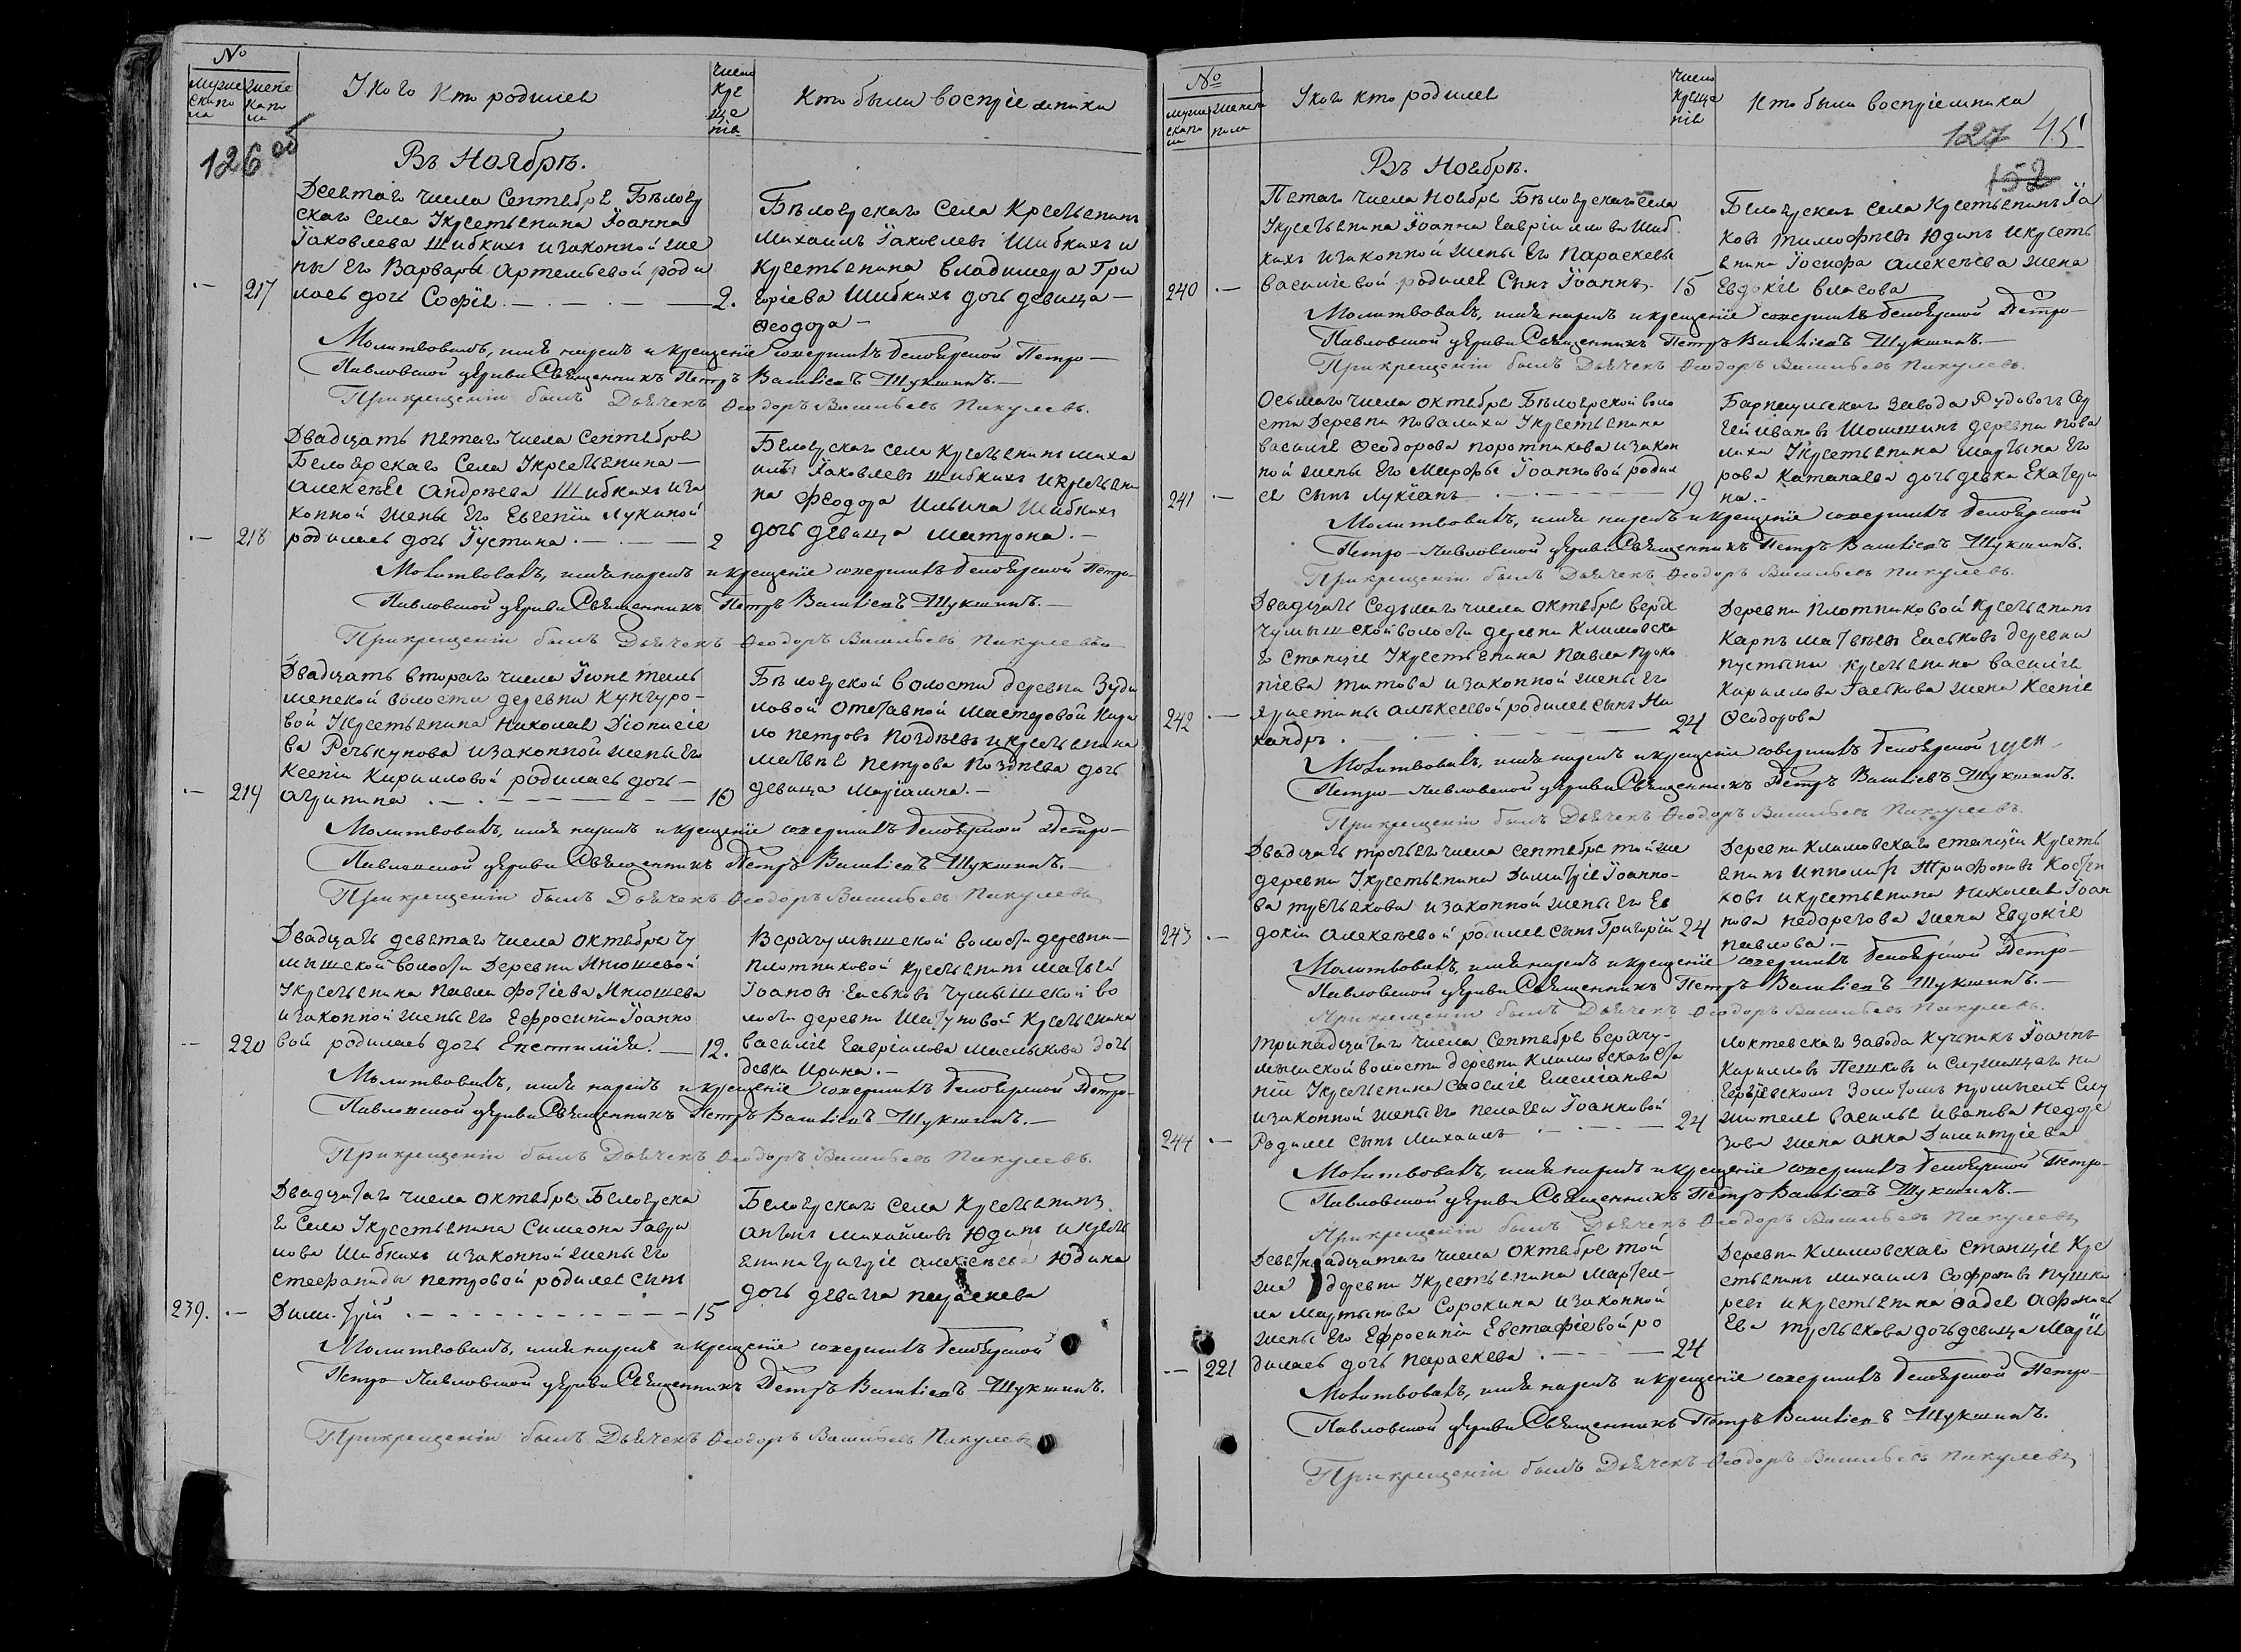 №
мужескапола
женскапола
У кого кто родился
число крещенiя
Кто были воспрiемники
126 об
Въ Ноябрѣ.
Десятаго числа Сентября Бѣлояр
скаго села У крестьянина Iоанна
Iаковлева Шибкихъ и законной же
ны Его Варвары Артемьевой роди
·— 217 лась дочь Софiя — 2.
Бѣлоярскаго Села Крестьянинъ
Михаилъ Iаковлевъ Шибкихъ и
Крестьянина Владимера Гри
горiева Шибкихъ дочь девица —
Ѳеодора —
Молитвовалъ, имя нарекъ и крещенiе совершилъ Белоярской Петро—
Павловской церкви Священникъ Петръ Васильевъ Шукшинъ.—
При крещенiи былъ Дьячекъ Ѳеодоръ Васильевъ Пикулевъ.
Двадцать пятаго числа Сентября
Белоярскаго Села У крестьянина —
Алексѣя Андрѣева Шибкихъ и за
конной жены Его Евгенiи Лукиной
·— 218 родилась дочь Iустина. — 2
Бѣлоярскаго села крестьянинъ Миха
илъ Iаковлевъ Шибкихъ и крестьяни
на Феодора Ильина Шибкихъ
дочь девица Матрона. —
Молитвовалъ, имя нарекъ и крещенiе совершилъ Белоярской Петро—
Павловской церкви Священникъ Петръ Васильевъ Шукшинъ.—
При крещенiи былъ Дьячекъ Ѳеодоръ Васильевъ Пикулевъ
Двадцать втораго числа Iюня Таль
менской волости деревни Кунгуро—
вой У крестьянина Николая Дiонисiе
ва Речкунова и законной жены Его
Ксенiи Кириловой родилась дочь —
·— 219 Агрипина — 10
Бѣлоярской волости деревни Зуди
ловой Отставной Мастеровой Кири
ло Петровъ Поздѣевъ и крестьянина
Матвѣя Петрова Поздѣева дочь
девица Марiамна. —
Молитвовалъ, имя нарекъ и крещенiе совершилъ Белоярской Петро—
Павловской церкви Священникъ Петръ Васильевъ Шукшинъ.—
При крещенiи былъ Дьячекъ Ѳеодоръ Васильевъ Пикулевъ
Двадцать девятаго числа Октября Чу
мышской волости Деревни Анюшевой
У крестьянина Павла Фотiева Анюшева
и законной жены Его Ефросинiи Iоанно
— 220 вой родилась дочь Епистимiя. — 12.
Верхчумышской волости деревни —
Плотниковой крестьянинъ Матвей
Iоановъ Еськовъ Чумышской во
лости деревни Шатуновой Крестьянина
Василiя Гаврiилова Маслыкова дочь
девка Ирина. —
Молитвовалъ, имя нарекъ и крещенiе совершилъ Белоярской Петро—
Павловской церкви Священникъ Петръ Васильевъ Шукшинъ.—
При крещенiи былъ Дьячекъ Ѳеодоръ Васильевъ Пикулевъ.
Двадцатаго числа Октября Белоярска
го Села У крестьянина Симеона Гаври
лова Шибкихъ и законной жены Его
Стефаниды Петровой родился сынъ
239. ·— Димитрiй — 15
Белоярскаго Села Крестьянинъ
Антонъ Михайловъ Юдинъ и кресть
янина Григорiя Алексѣева Юдина
дочь девица Параскева
Молитвовалъ, имя нарекъ и крещенiе совершилъ Белоярской
Петро-Павловской церкви Священникъ Петръ Васильевъ Шукшинъ.
При крещенiи былъ Дьячекъ Ѳеодоръ Васильевъ Пикулевъ
№
мужескапола
женскапола
У кого кто родился
число крещенiя
Кто были воспрiемники
127 45
152
Въ Ноябрѣ.
Пятаго числа Ноября Бѣлоярскаго села
У крестьянина Iоанна Гаврiилова Шиб
кихъ и законной жены Его Параскевы
240 ·— Василiевой родился Сынъ Iоаннъ. 15
Белоярскаго села Крестьянинъ Iа
ковъ Тимофѣевъ Юдинъ и кресть
янина Iосифа Алексѣева жена
Евдокiя Власова
Молитвовалъ, имя нарекъ и крещенiе совершилъ Белоярской Петро—
Павловской церкви Священникъ Петръ Васильевъ Шукшинъ.—
При крещенiи былъ Дьячекъ Ѳеодоръ Васильевъ Пикулевъ.
Осьмаго числа Октября Бѣлоярской воло
сти Деревни Повалихи У крестьянина
Василiя Ѳеодорова Поротникова и закон
ной жены Его Марфы Iоанновой родил
241 ·— ся сынъ Лукiанъ — 19
Барнаульскаго Завода Рудовозъ Сер
гей Ивановъ Шошинъ деревни Пова
лихи У крестьянина Мартына Его
рова Катанаева дочь девка Екатери
на. —
Молитвовалъ, имя нарекъ и крещенiе совершилъ Белоярской
Петро-Павловской церкви Священникъ Петръ Васильевъ Шукшинъ.
При крещенiи былъ Дьячекъ Ѳеодоръ Васильевъ Пикулевъ.
Двадцать Седьмаго числа Октября Верх
чумышской волости деревни Климовска
го Станцiя У крестьянина Павла Проко
пiева Титова и законной жены Его
242 ·— Христины Алексеевой родился сынъ Ни
кандръ. — 24
Деревни Плотниковой Крестьянинъ
Карпъ Матвѣевъ Еськовъ деревни
Пустыни крестьянина Василiя
Кирилова Гаськова жена Ксенiя
Ѳеодорова
Молитвовалъ, имя нарекъ и крещенiе совершилъ Белоярской
Петро-Павловской церкви Священникъ Петръ Васильевъ Шукшинъ.
При крещенiи былъ Дьячекъ Ѳеодоръ Васильевъ Пикулевъ.
Двадцать третьяго числа Сентября той же
деревни У крестьянина Димитрiя Iоанно—
ва Третьякова и законной жены Его Ев
243 ·— докiи Алексѣевой родился сынъ Григорiй 24
Деревни Климовскаго станцiи Кресть
янинъ Ипполитъ Трифоновъ Костен
ковъ и крестьянина Николая Iоан
нова Недорезова жена Евдокiя
Павлова. —
Молитвовалъ, имя нарекъ и крещенiе совершилъ Белоярской Петро—
Павловской церкви Священникъ Петръ Васильевъ Шукшинъ.—
При крещенiи былъ Дьячекъ Ѳеодоръ Васильевъ Пикулевъ.
Тринадцатаго числа Сентября Верхчу—
мышской волости деревни Климовскаго Ста
нцiи У крестьянина Василiя Емелiанова
и законной жены Его Пелагеи Iоанновой
244 ·— Родился сынъ Михаилъ — 24
Локтевскаго завода Кучникъ Iоаннъ
Кириловъ Пешковъ и Служащаго на
Егорьевскомъ Золотомъ промысле Слу
жителя Василья Иванова Недоре
зова жена Анна Димитрiева
Молитвовалъ, имя нарекъ и крещенiе совершилъ Белоярской Петро—
Павловской церкви Священникъ Петръ Васильевъ Шукшинъ.—
При крещенiи былъ Дьячекъ Ѳеодоръ Васильевъ Пикулевъ
Девятнадцатаго числа Октября той
же деревни У крестьянина Мартем—
на Мартынова Сорокина и законной
жены Его Ефросинiи Евстафiевой ро
— 221 дилась дочь Параскева — 24
Деревни Климовскаго Станцiя Кре
стьянинъ Михаилъ Софроновъ Пушка
ревъ и крестьянина Ѳадея Афонась
ева Третьякова дочь девица Марiя
Молитвовалъ, имя нарекъ и крещенiе совершилъ Белоярской Петро—
Павловской церкви Священникъ Петръ Васильевъ Шукшинъ.
При крещенiи былъ Дьячекъ Ѳеодоръ Васильевъ Пикулевъ